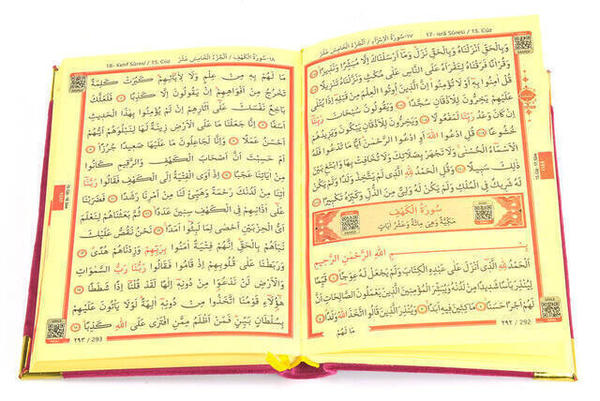 ١٧-سُورَةُ الْإِسْرَاءِ / اَلْجُزْءُ الْخَامِسَ عَشَرَ 17- İsrâ Sûresi / 15. Cüz
وَبِالْحَقِّ اَنْزَلْنَاهُ وَبِالْحَقِّ نَزَلَ وَمَا اَرْسَلْنَاكَ اِلَّا مُبَشِّرًا وَنَذِيرًا
وَقُرْاٰنًا فَرَقْنَاهُ لِتَقْرَاَهُ عَلَى النَّاسِ عَلٰى مُكْثٍ وَنَزَّلْنَاهُ تَنْزِيلًا
قُلْ اٰمِنُوا بِهِ اَوْ لَا تُؤْمِنُوا اِنَّ الَّذِينَ اُوتُوا الْعِلْمَ مِنْ قَبْلِهِ اِذَا يُتْلٰى
عَلَيْهِمْ يَخِرُّونَ لِلْاَذْقَانِ سُجَّدًا وَيَقُولُونَ سُبْحَانَ رَبِّنَا
اِنْ كَانَ وَعْدُ رَبِّنَا لَمَفْعُولًا وَيَخِرُّونَ لِلْاَذْقَانِ يَبْكُونَ وَيَزِيدُهُمْ
خُشُوعًا قُلِ ادْعُوا اللّٰهَ اَوِ ادْعُوا الرَّحْمٰنَ اَيًّا مَا تَدْعُوا فَلَهُ
الْاَسْمَاءُ الْحُسْنٰى وَلَا تَجْهَرْ بِصَلَاتِكَ وَلَا تُخَافِتْ بِهَا وَابْتَغِ بَيْنَ
ذٰلِكَ سَبِيلًا وَقُلِ الْحَمْدُ لِلّٰهِ الَّذِي لَمْ يَتَّخِذْ وَلَدًا وَلَمْ يَكُنْ
لَهُ شَرِيكٌ فِي الْمُلْكِ وَلَمْ يَكُنْ لَهُ وَلِيٌّ مِنَ الذُّلِّ وَكَبِّرْهُ تَكْبِيرًا
سُورَةُ الْكَهْفِ
مَكِّيَّةٌ وَهِيَ مِائَةٌ وَعَشْرُ اٰيَاتٍ
بِسْمِ اللّٰهِ الرَّحْمٰنِ الرَّحِيمِ
اَلْحَمْدُ لِلّٰهِ الَّذِي اَنْزَلَ عَلٰى عَبْدِهِ الْكِتَابَ وَلَمْ يَجْعَلْ لَهُ عِوَجًا قَيِّمًا
لِيُنْذِرَ بَاْسًا شَدِيدًا مِنْ لَدُنْهُ وَيُبَشِّرَ الْمُؤْمِنِينَ الَّذِينَ يَعْمَلُونَ الصَّالِحَاتِ اَنَّ
لَهُمْ اَجْرًا حَسَنًا مَاكِثِينَ فِيهِ اَبَدًا وَيُنْذِرَ الَّذِينَ قَالُوا اتَّخَذَ اللّٰهُ وَلَدًا
مَا لَهُمْ
٢٩٢ / 292
١٨-سُورَةُ الْكَهْفِ / اَلْجُزْءُ الْخَامِسَ عَشَرَ 18- Kehf Sûresi / 15. Cüz
مَا لَهُمْ بِهِ مِنْ عِلْمٍ وَلَا لِاٰبَائِهِمْ كَبُرَتْ كَلِمَةً
تَخْرُجُ مِنْ اَفْوَاهِهِمْ اِنْ يَقُولُونَ اِلَّا كَذِبًا فَلَعَلَّكَ
بَاخِعٌ نَفْسَكَ عَلٰى اٰثَارِهِمْ اِنْ لَمْ يُؤْمِنُوا بِهٰذَا الْحَدِيثِ
اَسَفًا اِنَّا جَعَلْنَا مَا عَلَى الْاَرْضِ زِينَةً لَهَا لِنَبْلُوَهُمْ اَيُّهُمْ
اَحْسَنُ عَمَلًا وَاِنَّا لَجَاعِلُونَ مَا عَلَيْهَا صَعِيدًا جُرُزًا
اَمْ حَسِبْتَ اَنَّ اَصْحَابَ الْكَهْفِ وَالرَّقِيمِ كَانُوا
مِنْ اٰيَاتِنَا عَجَبًا اِذْ اَوَى الْفِتْيَةُ اِلَى الْكَهْفِ فَقَالُوا رَبَّنَا
اٰتِنَا مِنْ لَدُنْكَ رَحْمَةً وَهَيِّئْ لَنَا مِنْ اَمْرِنَا رَشَدًا فَضَرَبْنَا
عَلٰى اٰذَانِهِمْ فِي الْكَهْفِ سِنِينَ عَدَدًا ثُمَّ بَعَثْنَاهُمْ لِنَعْلَمَ
اَيُّ الْحِزْبَيْنِ اَحْصٰى لِمَا لَبِثُوا اَمَدًا نَحْنُ نَقُصُّ عَلَيْكَ
نَبَاَهُمْ بِالْحَقِّ اِنَّهُمْ فِتْيَةٌ اٰمَنُوا بِرَبِّهِمْ وَزِدْنَاهُمْ هُدًى
وَرَبَطْنَا عَلٰى قُلُوبِهِمْ اِذْ قَامُوا فَقَالُوا رَبُّنَا رَبُّ السَّمٰوَاتِ
وَالْاَرْضِ لَنْ نَدْعُوَا مِنْ دُونِهِ اِلٰهًا لَقَدْ قُلْنَا اِذًا شَطَطًا
هٰؤُلَاءِ قَوْمُنَا اتَّخَذُوا مِنْ دُونِهِ اٰلِهَةً لَوْلَا يَاْتُونَ عَلَيْهِمْ
بِسُلْطَانٍ بَيِّنٍ فَمَنْ اَظْلَمُ مِمَّنِ افْتَرٰى عَلَى اللّٰهِ كَذِبًا
٢٩٣ / 293